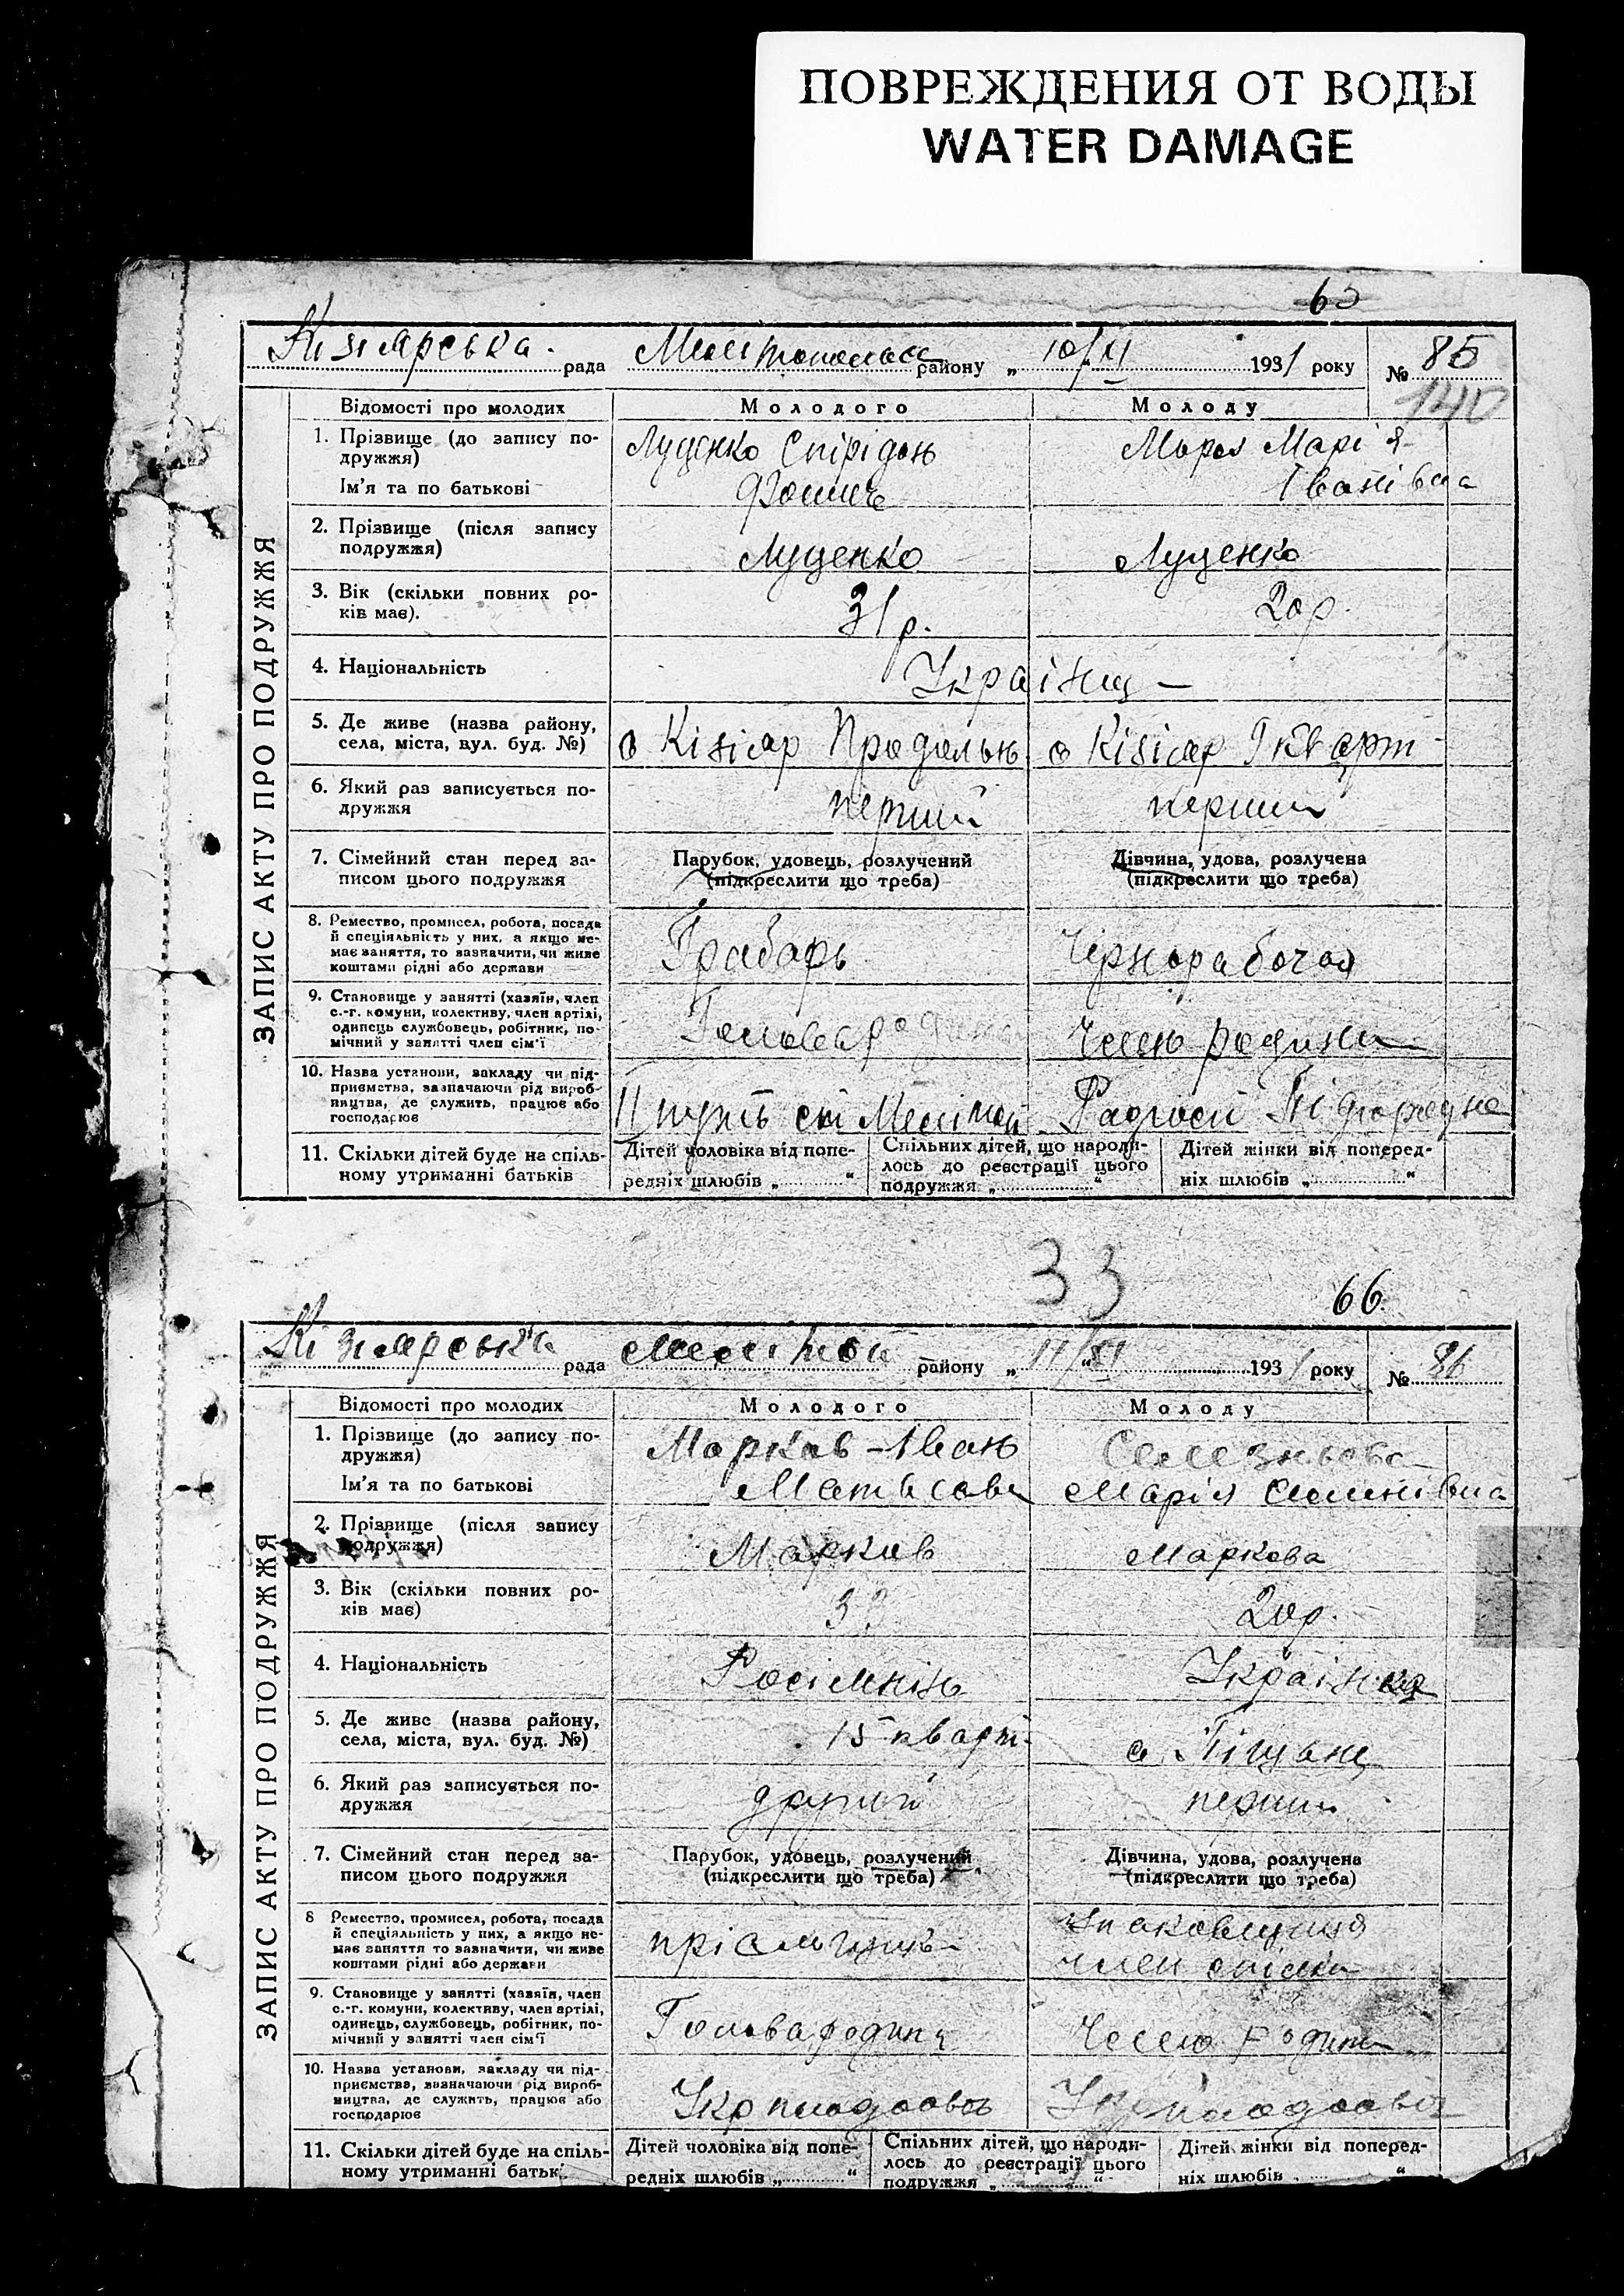 ПОВРЕЖДЕНИЯ ОТ ВОДЫ
WATER DAMAGE
Кізіярська рада району „ 10/XI 1931 року № 85
140
ЗАПИС АКТУ ПРО ПОДРУЖЖЯ
Відомості про молодих Молодого Молоду
1. Прізвище (до запису по-
дружжя)
Ім’я та по батькові
Луценко Спірідон
Фомич
Марія
Іванівна
2. Прізвище (після запису
подружжя)
Луценко Луценко
3. Вік (скільки повних ро-
ків має).
31 р. 20 р.
4. Національність
Українці —
5. Де живе (назва району,
села, міста, вул. буд. №)
с Кізіяр Продольн с Кізіяр кварт
6. Який раз записується по-
дружжя
перший перший
7. Сімейний стан перед за-
писом цього подружжя
Парубок, удовець, розлучений
(підкреслити що треба)
Дівчина, удова, розлучена
(підкреслити що треба)
8. Ремество, промисел, робота, посада
й спеціяльність у них, а якщо не-
має заняття, то зазначити, чи живе
коштами рідні або держави
Грабарь Чернорабочая
9. Становище у занятті (хазяїн, член
с.-г. комуни, колективу, член артілі,
одинець службовець, робітник, по-
мічний у занятті член сім’ї
Голова родини Член родини
10. Назва установи, закладу чи під-
приємства, зазначаючи рід вироб-
ництва, де служить, працює або
господарює
11 путь ст Меліто
11. Скільки дітей буде на спіль-
ному утриманні батьків
Дітей чоловіка від попе-
редніх шлюбів „ “
Спільних дітей, що народи-
лось до реєстрації цього
подружжя „ “
Дітей жінки від поперед-
ніх шлюбів „ “
33
66
Кізіярська рада Меліт району „ 11/XI 1931 року № 86
ЗАПИС АКТУ ПРО ПОДРУЖЖЯ
Відомості про молодих Молодого Молоду
1. Прізвище (до запису по-
дружжя)
Ім’я та по батькові
Марков Іван
Селезньова
Марія Семенівна
2. Прізвище (після запису
подружжя)
Марков Маркова
3. Вік (скільки повних ро-
ків має)
20 р.
4. Національність
Росіянін Українка
5. Де живе (назва району,
села, міста, вул. буд. №)
15 кварт. с Піщане
6. Який раз записується по-
дружжя
другий перший
7. Сімейний стан перед за-
писом цього подружжя
Парубок, удовець, розлучений
(підкреслити що треба)
Дівчина, удова, розлучена
(підкреслити що треба)
8 Ремество, промисел, робота, посада
й спеціяльність у них, а якщо не-
має заняття то зазначити, чи живе
коштами рідні або держави
член спілки
9. Становище у занятті (хазяїн, член
с.-г. комуни, колективу, член артілі,
одинець, службовець, робітник, по-
мічний у занятті член сім’ї
Голова родини Член родини
10. Назва установи, закладу чи під-
приємства, зазначаючи рід вироб-
ництва, де служить, працює або
господарює
Укрплодоовоч Укрплодоовоч
11. Скільки дітей буде на спіль-
ному утриманні
Дітей чоловіка від попе-
редніх шлюбів „ “
Спільних дітей, що народи-
лось до реєстрації цього
подружжя „ “
Дітей жінки від поперед-
ніх шлюбів „ “